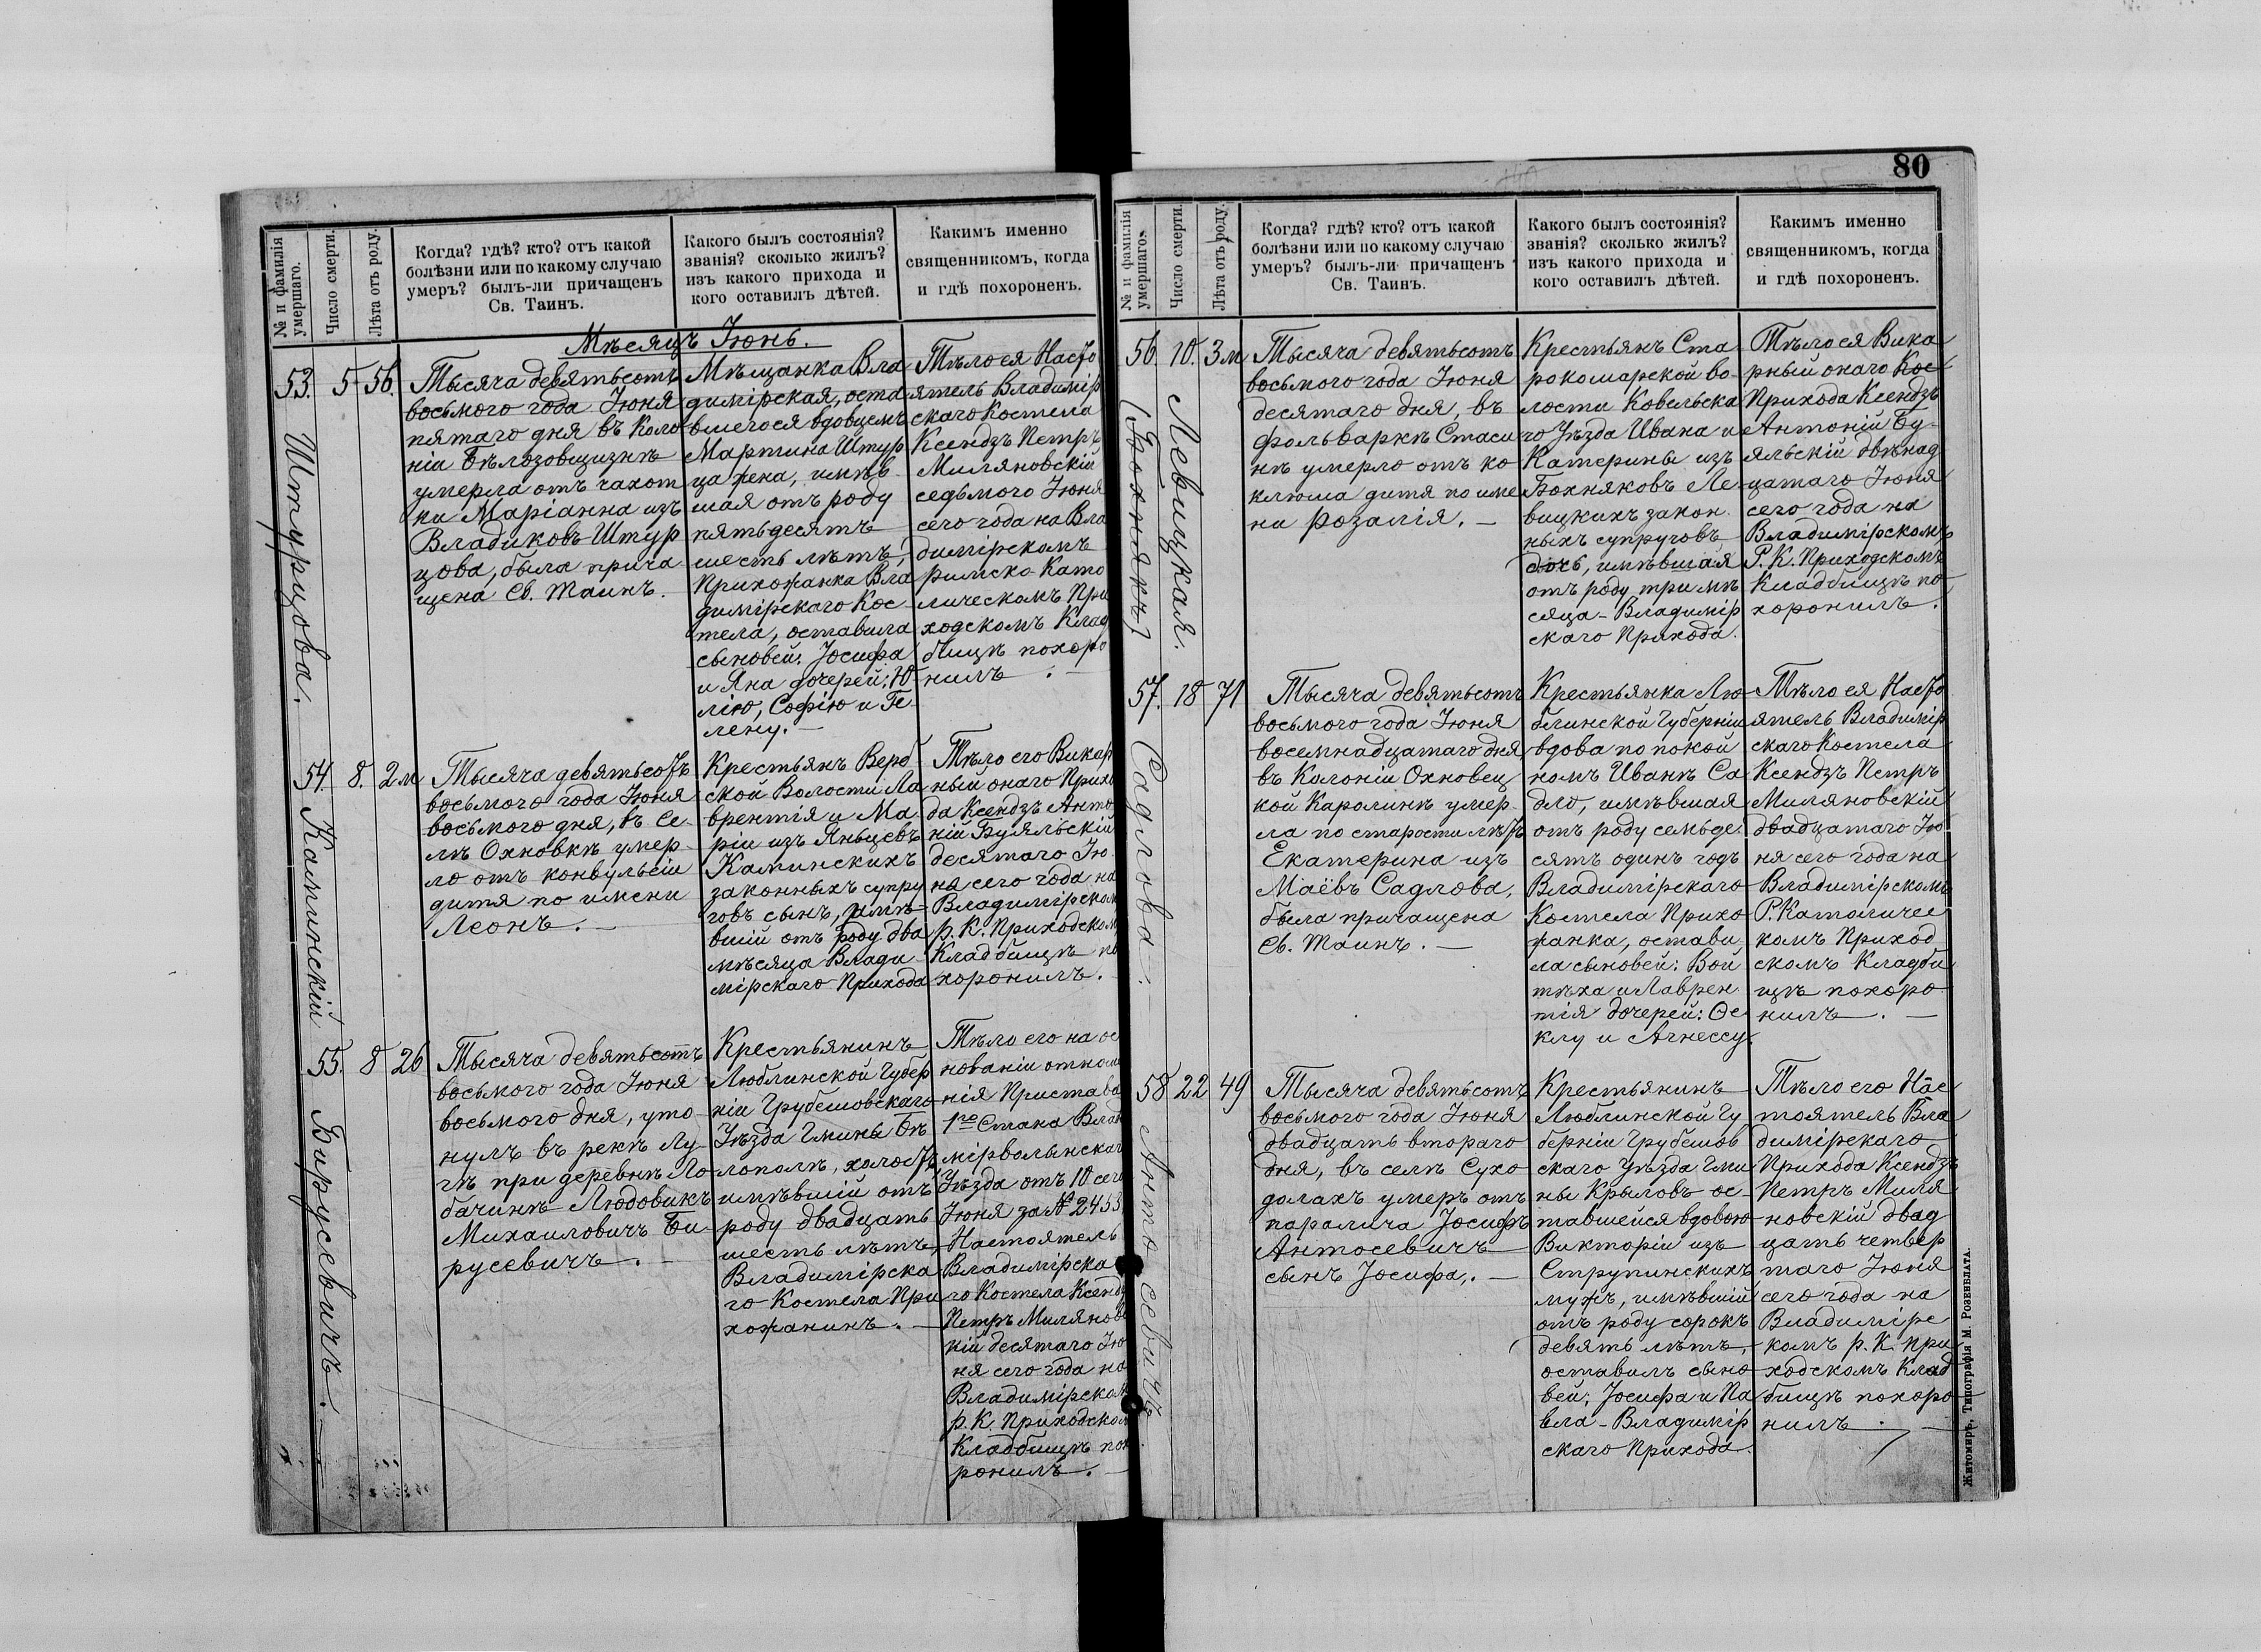 № и фамилія умершаго.
Число смерти.
Лѣта отъ роду.
Когда? гдѣ? кто? отъ какой
болѣзни или по какому случаю
умеръ? былъ-ли причащенъ
Св. Таинъ.
Какого былъ состоянія?
званія? сколько жилъ?
изъ какого прихода и
кого оставилъ дѣтей.
Какимъ именно
священникомъ, когда
и гдѣ похороненъ.
Мѣсяцъ Іюнь.
53. Штурцова.
5
56.
Тысяча девятьсотъ
восьмого года Іюня
пятаго дня въ Коло
ніи Бѣлозовщизнѣ
умерла отъ чахот
ки Маріанна изъ
Владиковъ Штур
цова, была прича
щена Св. Таинъ.
Мѣщанка Вла
димірская, оста
вшегося вдовцемъ
Мартина Штур
ца жена, имѣв-
шая отъ роду
пятьдесятъ
шесть лѣтъ,
Прихожанка Вла
димірскаго Кос-
тела, оставила
сыновей: Іосифа
и Яна дочерей: Ю-
лію, Софію и Ге-
лену. —
Тѣло ея Насто
ятель Владимір
скаго Костела
Ксендзъ Петръ
Миляновскій
седьмого Іюня
сего года на Вла
димірскомъ
римско-Като
лическомъ При
ходскомъ Клад
бищѣ похоро
нилъ. —
54. Каминскій
8.
2м
Тысяча девятьсотъ
восьмого года Іюня
восьмого дня, въ се-
лѣ Охновкѣ умер-
ло отъ конвульсіи
дитя по имени
Леонъ. —
Крестьянъ Верб
ской Волости Ла
врентія и Ма-
ріи изъ Яньцевъ
Каминскихъ
законныхъ супру
говъ сынъ, имѣ-
вшій отъ роду два
мѣсяца Влади-
мірскаго Прихода
Тѣло его Викар
ный онаго Прихо
да Ксендзъ Анто
ній Буяльскій
десятаго Ію-
ня сего года на
Владимірском
р. К. Приходском
Кладбищѣ по
хоронилъ. —
55. Бирусевичъ. —
8
26
Тысяча девятьсотъ
восьмого года Іюня
восьмого дня, уто-
нулъ въ рекѣ Лу-
гѣ при деревнѣ Ло-
бачинѣ Людовикъ
Михаиловичъ Би-
русевичъ. —
Крестьянинъ
Люблинской Губер
ніи Грубешовскаго
Уѣзда Гмины Бѣ
лополѣ, холостъ,
имѣвшій отъ
роду двадцать
шесть лѣтъ,
Владимірска
го Костела При
хожанинъ. —
Тѣло его на ос
нованіи отноше
нія Пристава
1го Стана Влад
мірволынскаго
Уѣзда отъ 10 сего
Іюня за № 2453
Настоятель
Владимірска
го Костела Ксендз
Петръ Милянов
кій десятаго Ію
ня сего года на
Владимірском
р. К. Приходском
Кладбищѣ пох
ронилъ. —
80
№ и фамилія умершаго.
Число смерти.
Лѣта отъ роду.
Когда? гдѣ? кто? отъ какой
болѣзни или по какому случаю
умеръ? былъ-ли причащенъ
Св. Таинъ.
Какого былъ состоянія?
званія? сколько жилъ?
изъ какого прихода и
кого оставилъ дѣтей.
Какимъ именно
священникомъ, когда
и гдѣ похороненъ.
56. Левицкая.
(Бохнякъ)
10.
3м
Тысяча девятьсотъ
восьмого года Іюня
десятаго дня, въ
фольваркѣ Стаси
нѣ умерло отъ ко
клюша дитя по име
ни Розалія. —
Крестьянъ Ста
рокошарской во-
лости Ковельска
го Уѣзда Ивана и
Катерины изъ
Бохняковъ Ле-
вицкихъ закон-
ныхъ супруговъ
дочь, имѣвшая
отъ роду три мѣ
сяца - Владимір
скаго Прихода.
Тѣло ея Вика
рный онаго Кос
Прихода Ксендзъ
Антоній Бу-
яльскій двѣнад
цатаго Іюня
сего года на
Владимірскомъ
Р. К. Приходскомъ
Кладбищѣ по-
хоронилъ.
57. Садлова.
18
71
Тысяча девятьсотъ
восьмого года Іюня
восемнадцатаго дня
въ Колоніи Охновец
кой Каролинѣ умер-
ла по старости лѣтъ
Екатерина изъ
Маёвъ Садлова,
была причащена
Св. Таинъ. —
Крестьянка Лю-
блинской Губерніи
вдова по покой
номъ Иванѣ Са
дло, имѣвшая
отъ роду семьде-
сятъ одинъ годъ
Владимірскаго
Костела Прихо-
жанка, остави-
ла сыновей: Вой
тѣха и Лаврен
тія дочерей: Фе
клу и Агнессу.
Тѣло ея Насто
ятель Владимір
скаго Костела
Ксендзъ Петръ
Миляновскій
двадцатаго Ію
ня сего года на
Владимірскомъ
Р. Католичес
комъ Приход
скомъ Кладби
щѣ похоро
нилъ. —
58 Антосевичъ
22
49
Тысяча девятьсотъ
восьмого года Іюня
двадцать втораго
дня, въ селѣ Сухо
долахъ умеръ отъ
паралича Іосифъ
Антосевичъ
сынъ Іосифа. —
Крестьянинъ
Люблинской Гу
берніи Грубешов
скаго Уѣзда Гми
ны Крыловъ ос-
тавшейся вдовою
Викторіи изъ
Струпинскихъ
мужъ, имѣвшій
отъ роду сорокъ
девять лѣтъ,
оставилъ сыно
вей: Іосифа и Па
вла - Владимір
скаго Прихода.
Тѣло его Нас
тоятель Вла
димірскаго
Прихода Ксендзъ
Петръ Миля
новскій двад
цать четвер
таго Іюня
сего года на
Владимірс
комъ р. К. При
ходскомъ Клад
бищѣ похоро
нилъ. —
Житомиръ, Типографія М. Розенблата.